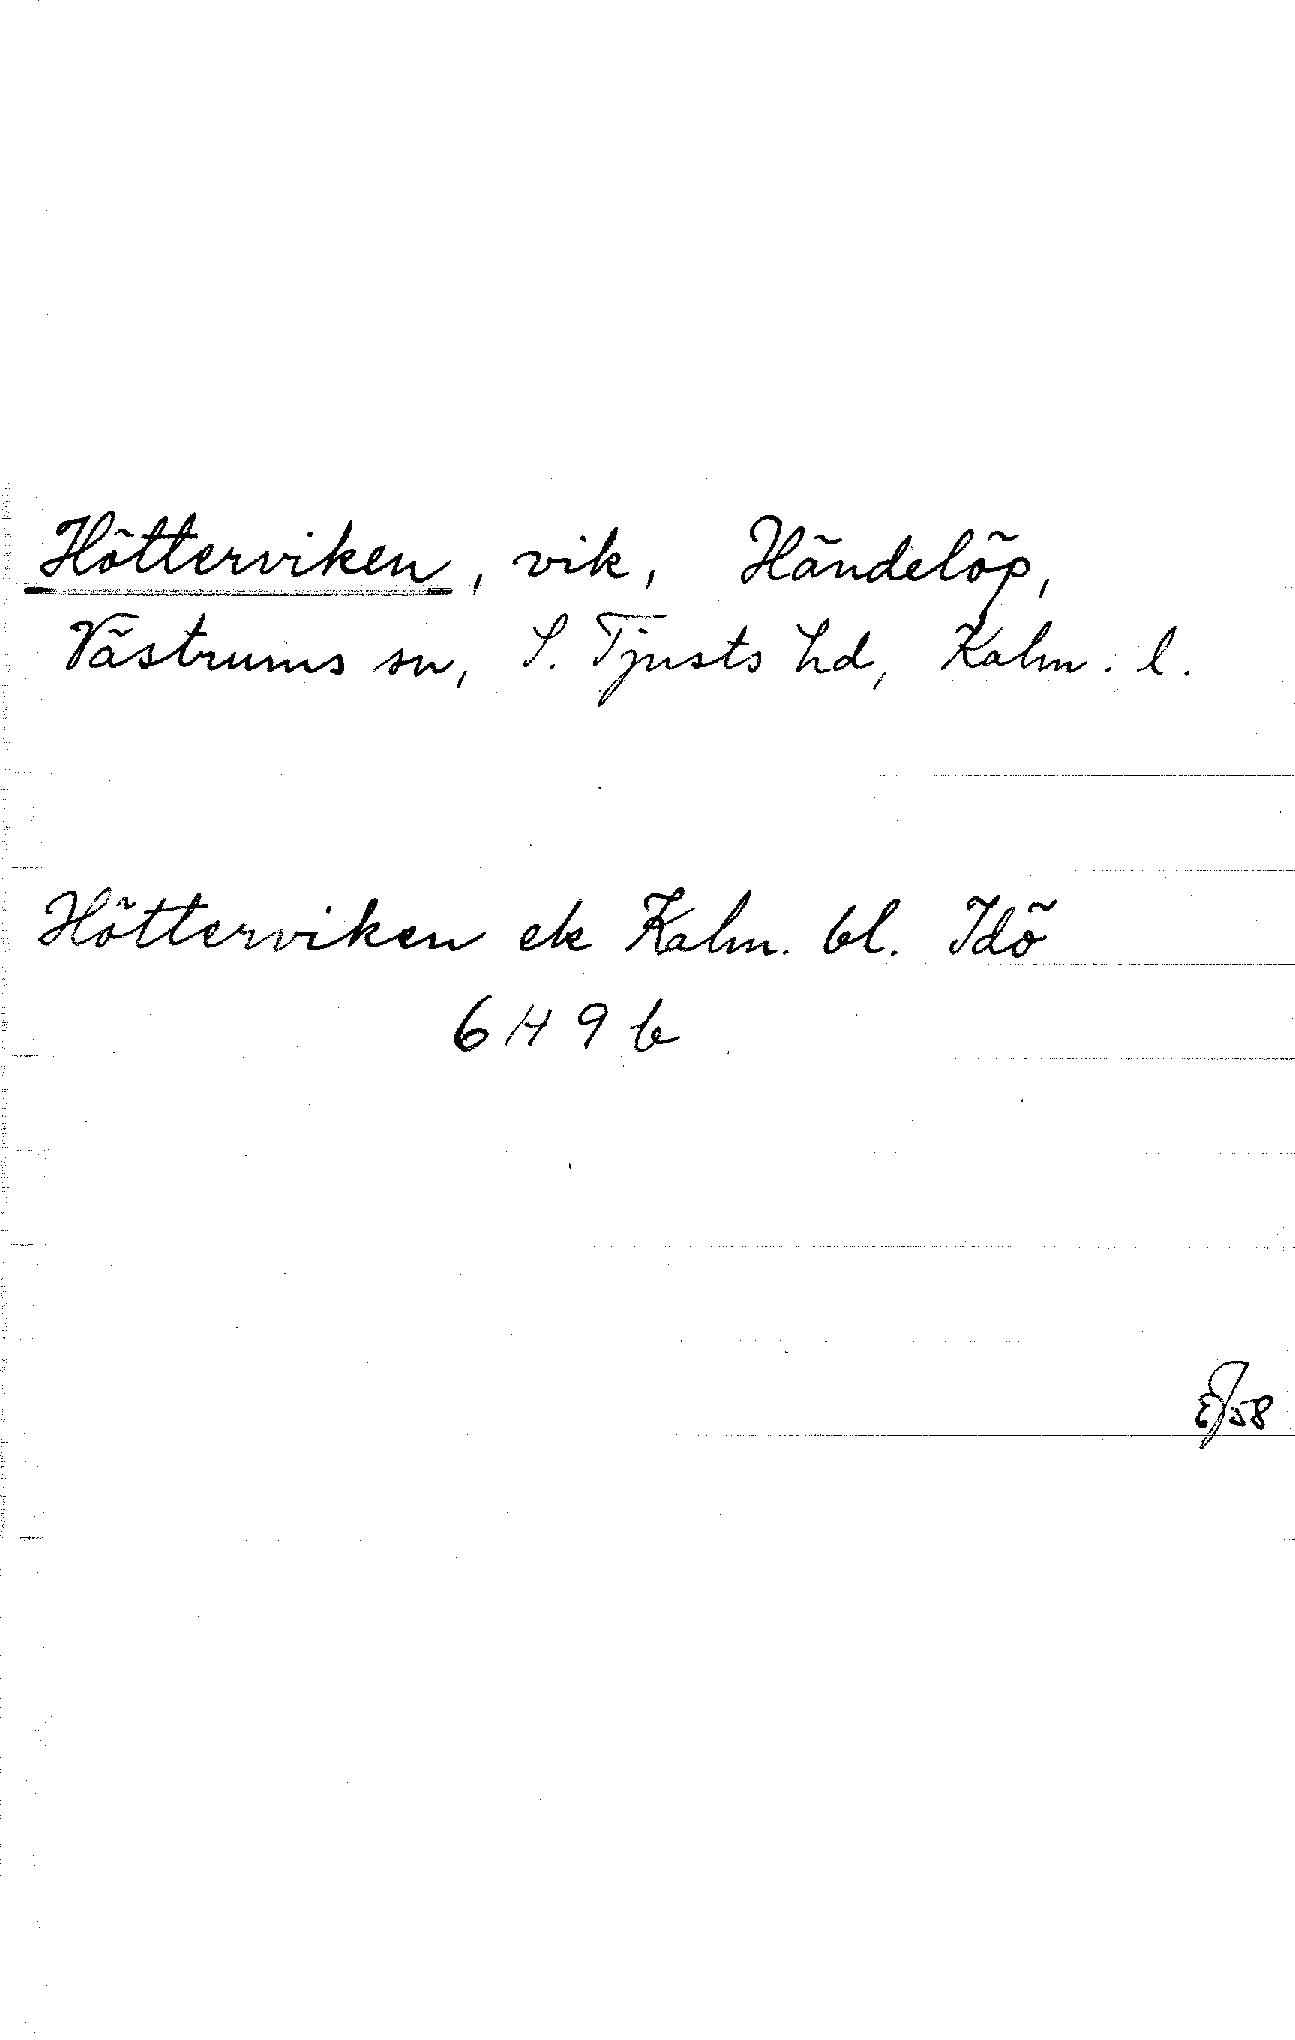 Hötterviken, vik, Händelöp,
Västrums sn, S. Tjusts hd, Kalm. l.
Hötterviken ek Kalm. bl. Idö
6 H 9 b